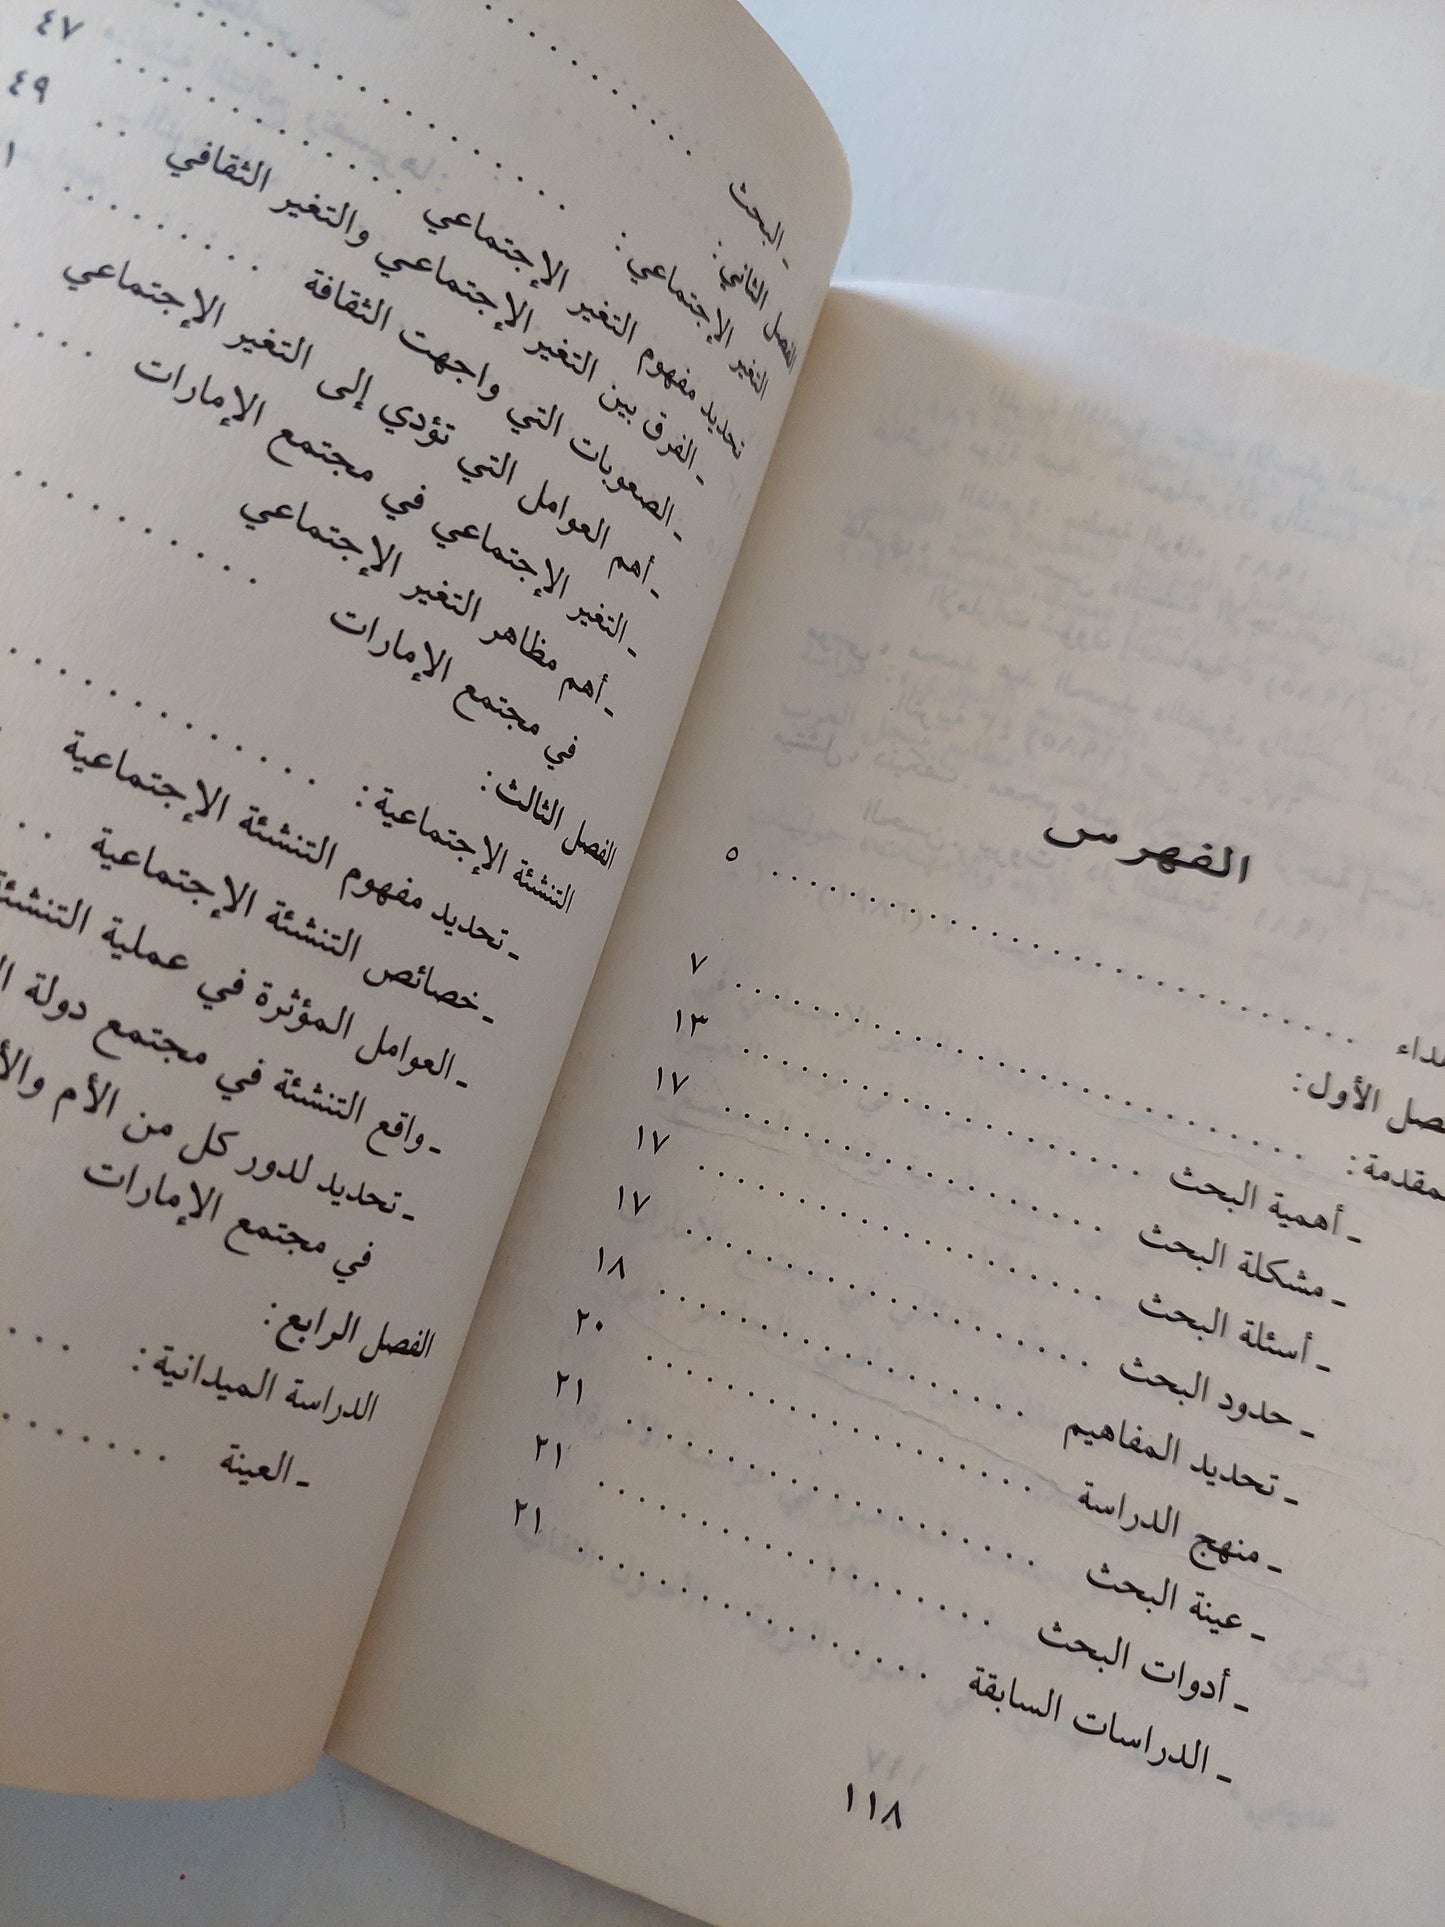 الفهرس
. . . . . . . . . . . . . . . . . . . . ٥
الأول:
. . . . . . . . . . . . . . . . . . . . ٧
ـ أهمية البحث . . . . . . . . . . . . . . . . . . . . ١٣
ـ مشكلة البحث . . . . . . . . . . . . . . . . . . . . ١٧
ـ أسئلة البحث . . . . . . . . . . . . . . . . . . . . ١٧
ـ حدود البحث . . . . . . . . . . . . . . . . . . . . ١٧
ـ تحديد المفاهيم . . . . . . . . . . . . . . . . . . . . ١٨
ـ منهج الدراسة . . . . . . . . . . . . . . . . . . . . ٢٠
ـ عينة البحث . . . . . . . . . . . . . . . . . . . . ٢١
ـ أدوات البحث . . . . . . . . . . . . . . . . . . . . ٢١
ـ الدراسات السابقة . . . . . . . . . . . . . . . . . . . . ٢١
١١٨
ـ البحث . . . . . . . . . .
الفصل الثاني:
التغير الإجتماعي: . . . . . . . . . . . . . . . ٤٧
تحديد مفهوم التغير الإجتماعي . . . . . . . . . . ٤٩
ـ الفرق بين التغير الإجتماعي والتغير الثقافي . .
ـ الصعوبات التي واجهت الثقافة . . . . . . . . .
ـ أهم العوامل التي تؤدي إلى التغير الإجتماعي
ـ التغير الإجتماعي في مجتمع الإمارات . . . .
ـ أهم مظاهر التغير الإجتماعي
في مجتمع الإمارات . . . . . . . . . .
الفصل الثالث:
التنشئة الإجتماعية: . . . . . . . . . . . . .
ـ تحديد مفهوم التنشئة الإجتماعية
ـ خصائص التنشئة الإجتماعية . . .
ـ العوامل المؤثرة في عملية
ـ واقع التنشئة في مجتمع دولة
ـ تحديد لدور كل من الأم
في مجتمع الإمارات
الفصل الرابع:
الدراسة الميدانية: . . . .
ـ العينة . . . . . . . .